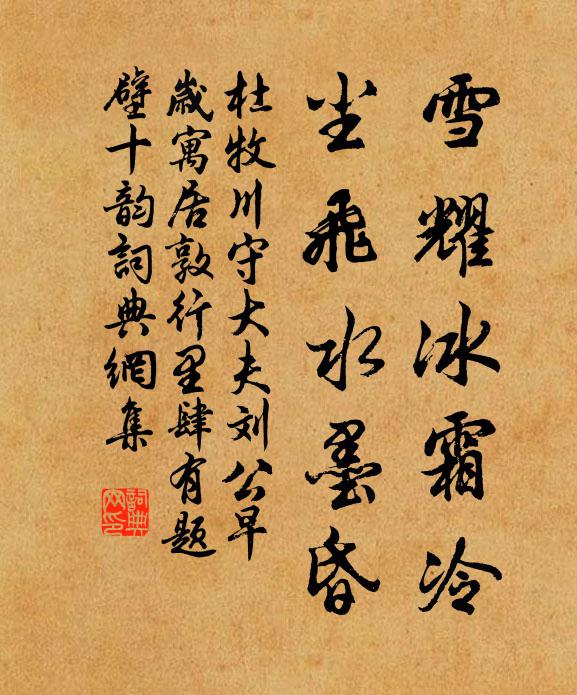 雪耀冰霜冷
尘飛水墨昏
杜牧川守大夫刘公早
歲寓居敦行里肆有题
壁十韵詞典網集
詞典网印